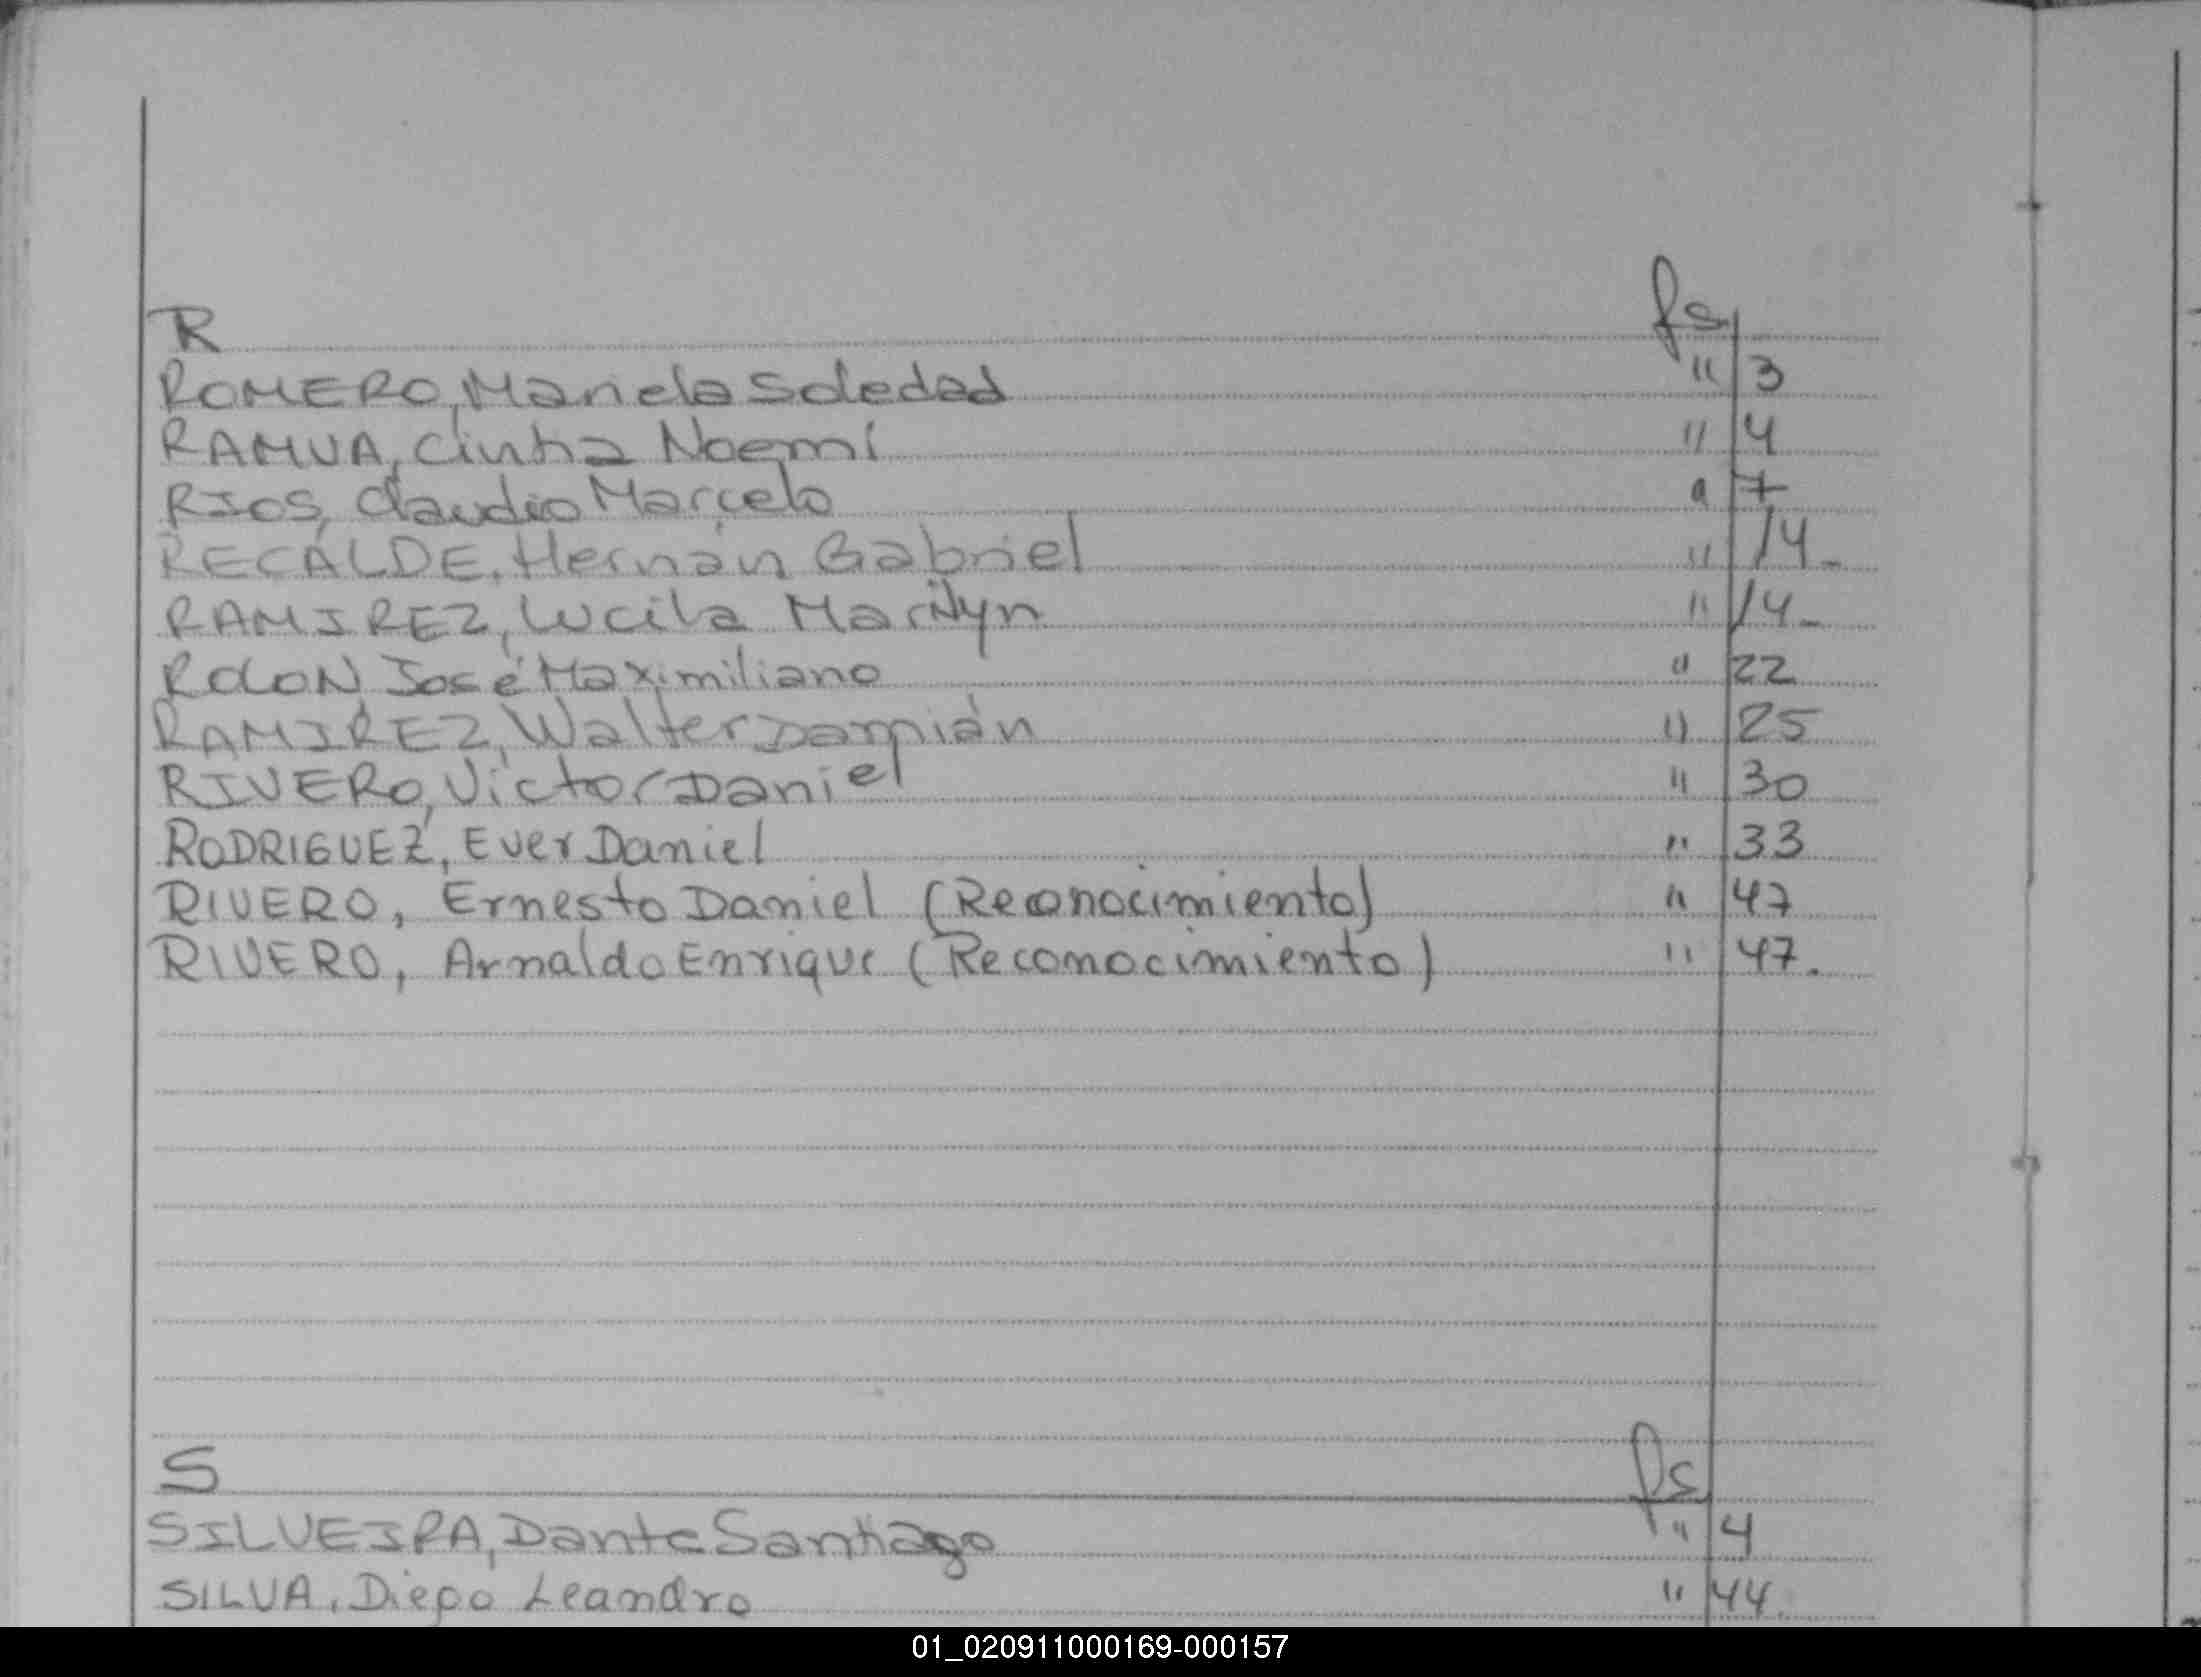 R fs
ROMERO, Mariela Soledad " 3
RAMUA, Cintia Noemí " 4
RIOS, Claudio Marcelo " 7
RECALDE, Hernán Gabriel " 14.
RAMIREZ, Lucila Marilyn " 14.
ROLON José Maximiliano " 22
RAMIREZ, Walter Damián " 25
RIVERO, Victor Daniel " 30
RODRIGUEZ, Ever Daniel " 33
RIVERO, Ernesto Daniel (Reconocimiento) " 47
RIVERO, Arnaldo Enrique (Reconocimiento) " 47.
S fs
SILVEIRA, Dante Santiago " 4
SILVA, Diego Leandro " 44.
01_020911000169-000157